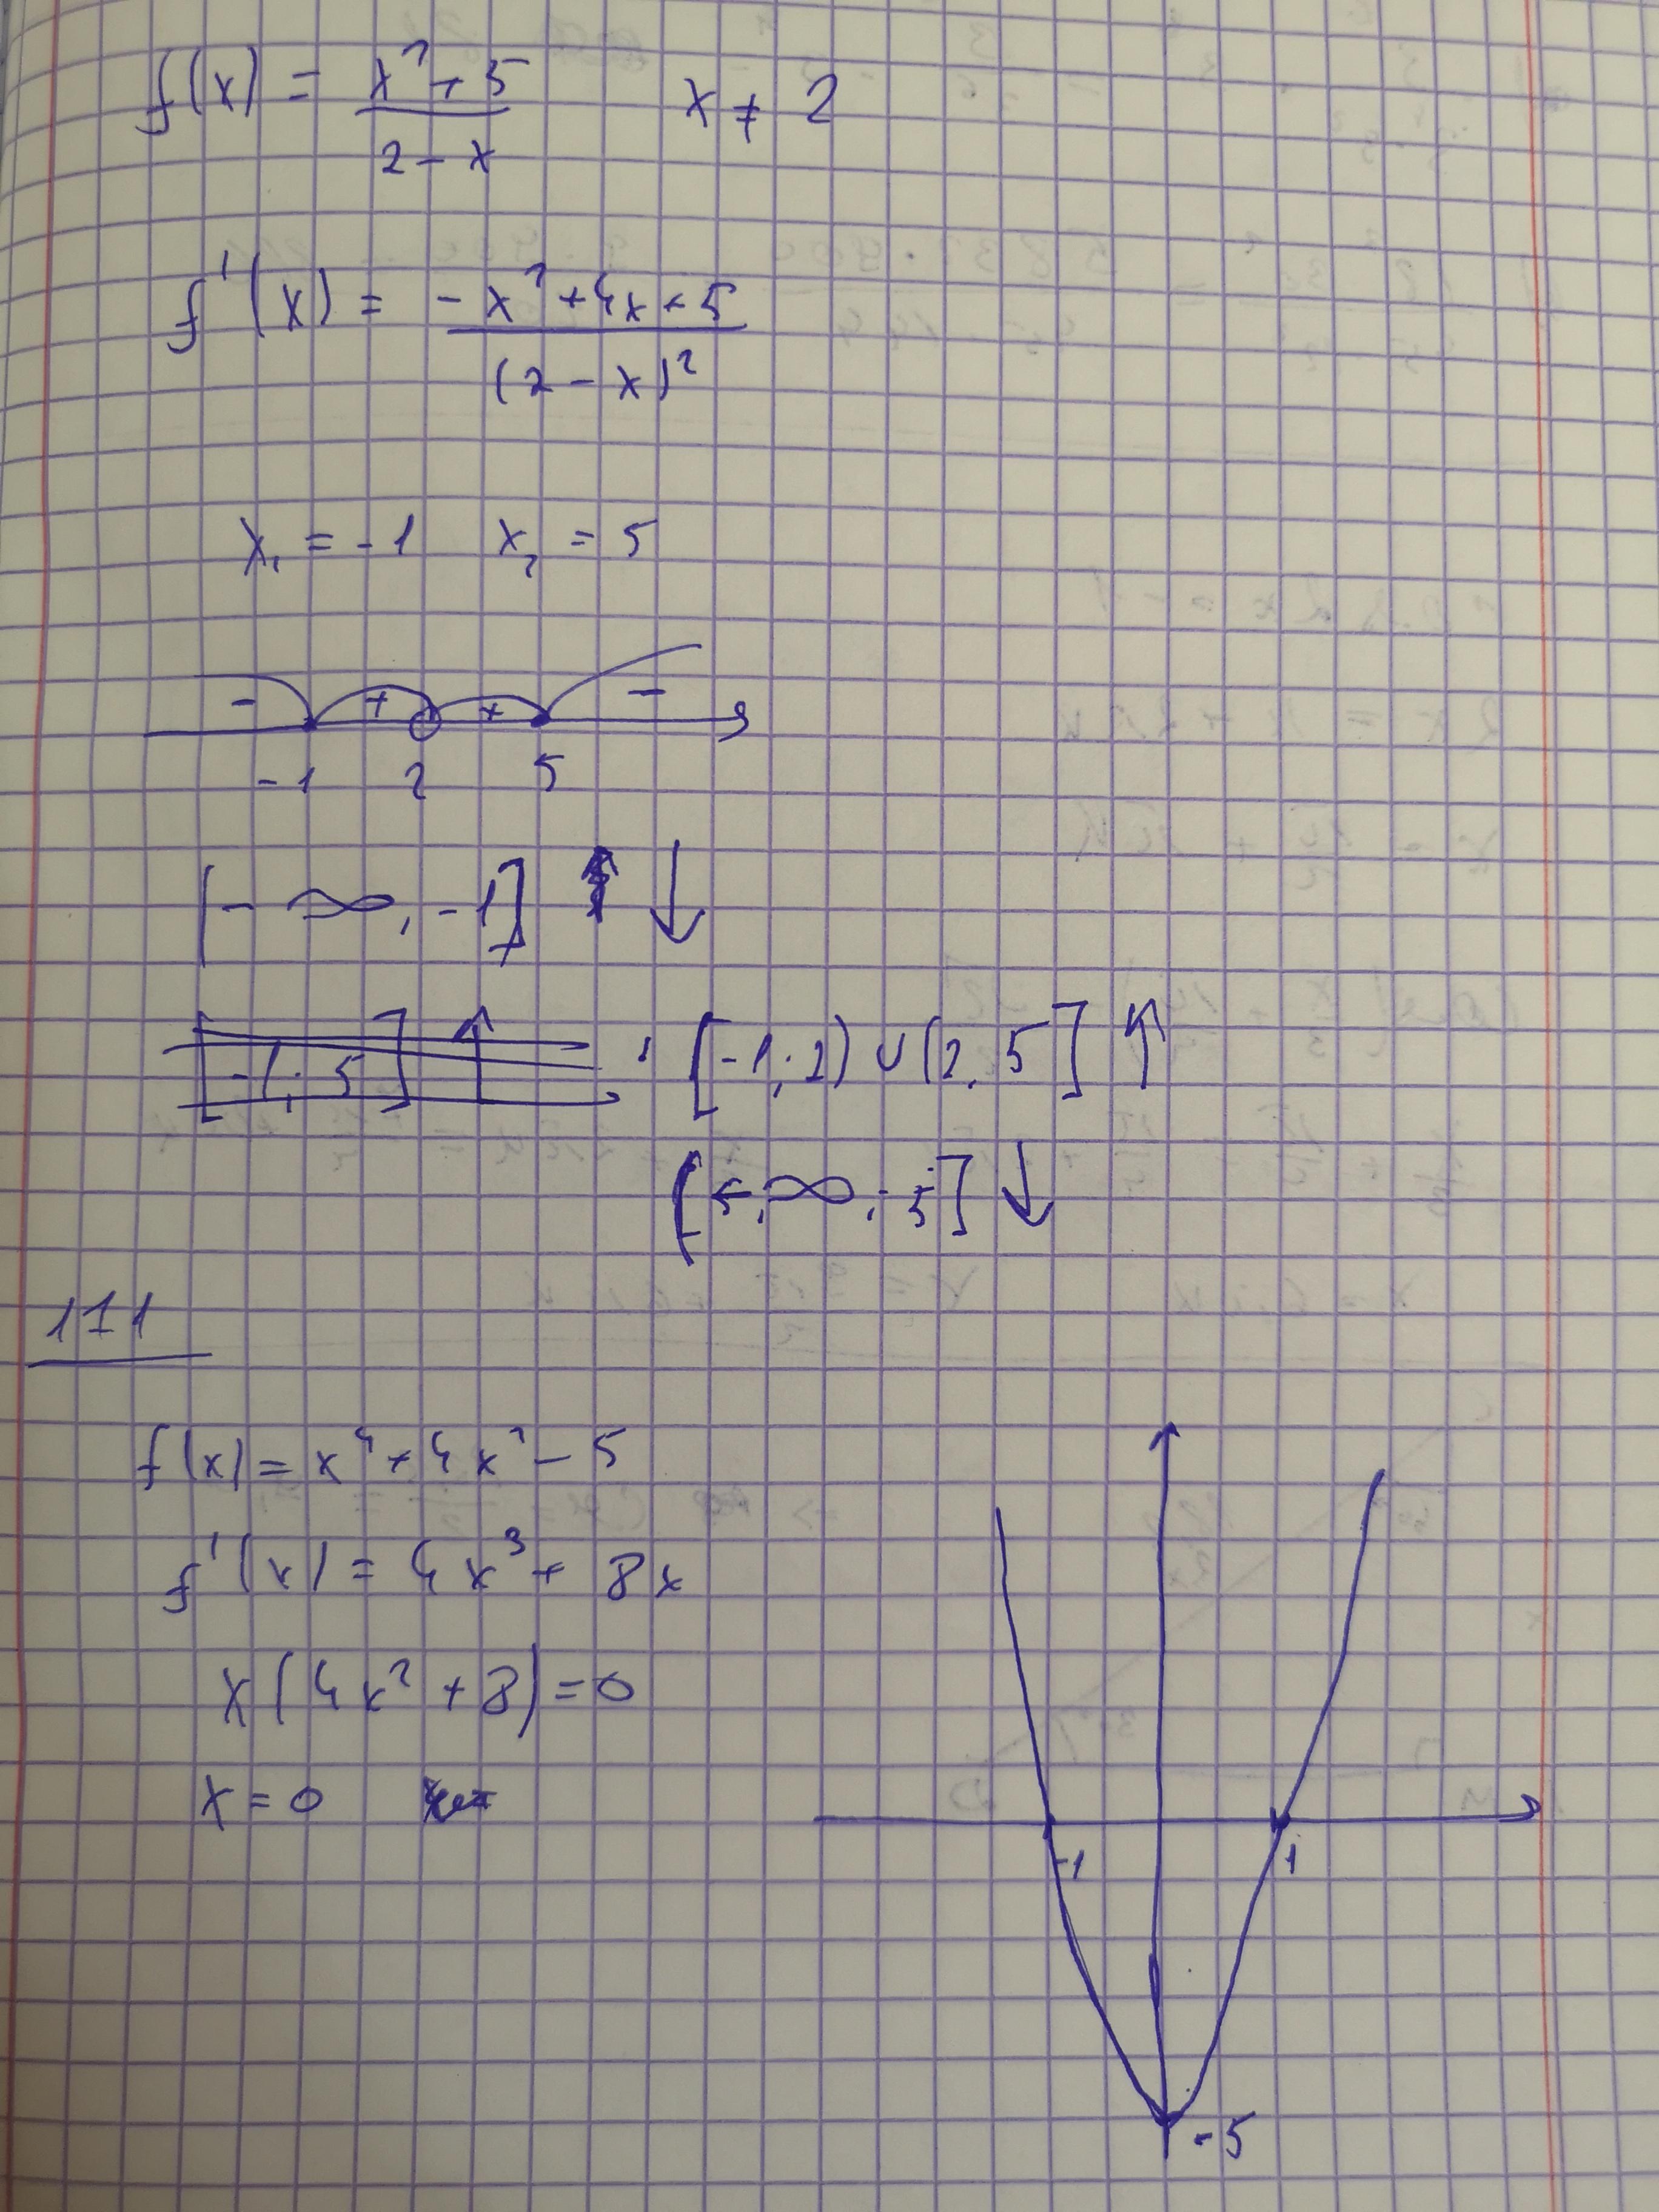 f(x) = (x² + 5)/(2 - x)    x ≠ 2
f'(x) = (-x² + 4x + 5)/(2 - x)²
x₁ = -1   x₂ = 5
- + + -
-1 2 5
[-∞, -1] ↓
[-1; 5] ↑ [-1; 2) ∪ (2, 5] ↑
∞ 5] ↓
111
f(x) = x⁴ + 4x² - 5
f'(x) = 4x³ + 8x
x(4x² + 8) = 0
x = 0
-1 1
-5